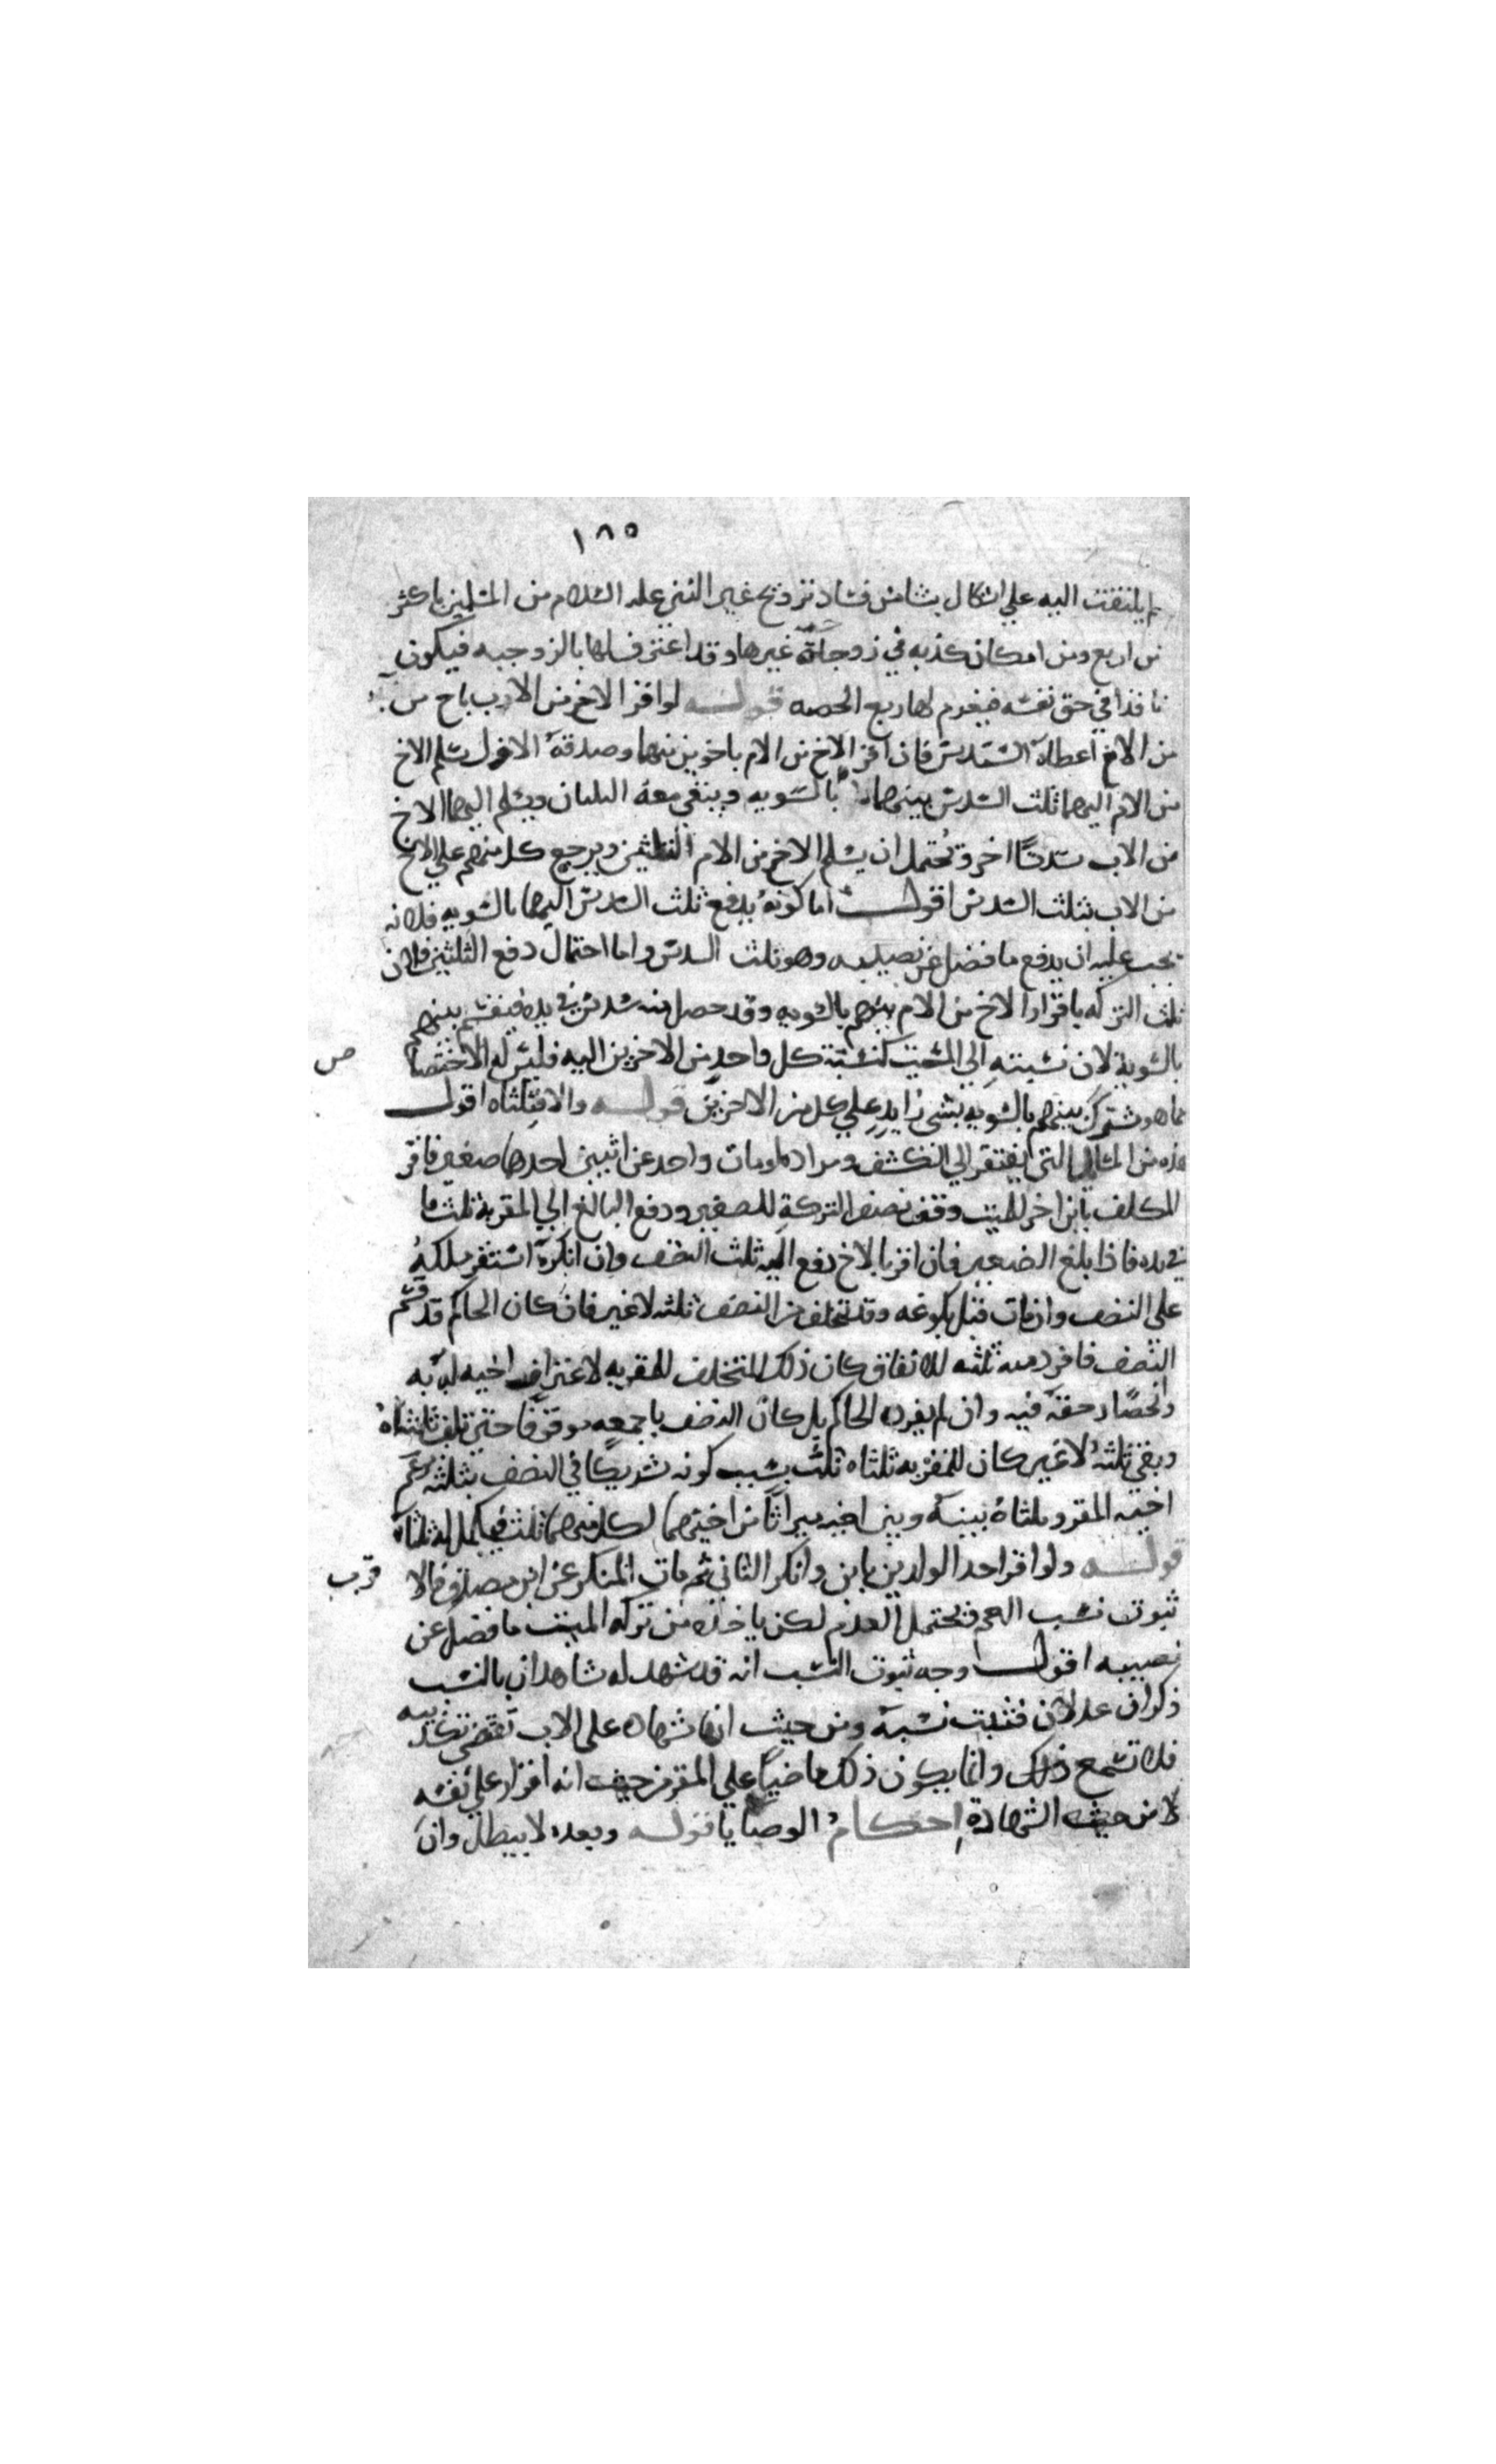 ١٨٥
لم يلتفت اليه علي اشكال ينشا من فساد تزويج غير النبي عليه السلام من المسلمين باكثر
من اربع ومن امكان كذبه في زوجية غيرها وقد اعترف لها بالزوجيه فيكون
نافذا في حق نفسه فيغرم لها ربع الحصه قوله لو اقر الاخ من الاب باخ من
من الام اعطاه السدس فان اقر الاخ من الام باخوين منها وصدقه الاول سلم الاخ
من الام اليهما ثلث السدس بينهما بالسويه ويبقي معه الثلثان ويسلم اليهما الاخ
من الاب سدسًا اخر ويحتمل ان يسلم الاخ من الام الثلثين ويرجع كل منهم علي الاخ
من الاب بثلث السدس اقول اما كونه يدفع ثلث السدس اليهما بالسويه فلانه
يجب عليه ان يدفع ما فضل عن نصيبه وهو ثلث السدس واما احتمال دفع الثلثين فلان
ثلث التركه باقرار الاخ من الام بينهم بالسويه وقد حصل منه سدس في يده فيقسم بينهم
بالسوية لان نسبته الي الميت كنسبة كل واحد من الاخرين اليه فليس له الاختصا
ص
بما هو مشترك بينهم بالسويه بشي زايد علي كل من الاخرين قوله والا فثلثاه اقول
هذه من المسائل التي يفتقر الي الكشف ومراده لو مات واحد عن اثنين احدهما صغير فاقر
المكلف بابن اخر للميت وقف نصف التركة للصغير ودفع البالغ الي المقر به ثلث ما
في يده فاذا بلغ الصغير فان اقر بالاخ دفع اليه ثلث النصف وان انكره استقر ملكه
علي النصف وان مات قبل بلوغه وقد تخلف من النصف ثلثه لا غير فان كان الحاكم قد قسم
النصف فافرد منه ثلثه للانفاق كان ذلك المتخلف للمقر به لاعتراف اخيه له به
وانحصار حقه فيه وان لم يفرده الحاكم بل كان النصف باجمعه موقوفا حتي تلف ثلثاه
وبقي ثلثه لا غير كان للمقر به ثلثاه ثلث بسبب كونه شريكا في النصف بثلثه بزعم
اخيه المقر وثلثاه بينه وبين اخيه ميراثا من اخيهما لكل منهما ثلث فيكمل له ثلثاه
قوله ولو اقر احد الولدين بابن وانكر الثاني ثم مات المنكر عن ابن مصدق فالا
قرب
ثبوت نسب العم ويحتمل العدم لكن ياخذ من تركه الميت ما فضل عن
نصيبه اقول وجه ثبوت النسب انه قد شهد له شاهدان بالنسب
ذكران عدلان فثبت نسبه ومن حيث انها شهاده علي الاب تقتضي تكذيبه
فلا تسمع ذلك وانما يكون ذلك ماضياً علي المقر من حيث انه اقرار علي نفسه
لا من حيث الشهادة احكام الوصايا قوله وبعده لا يبطل وان